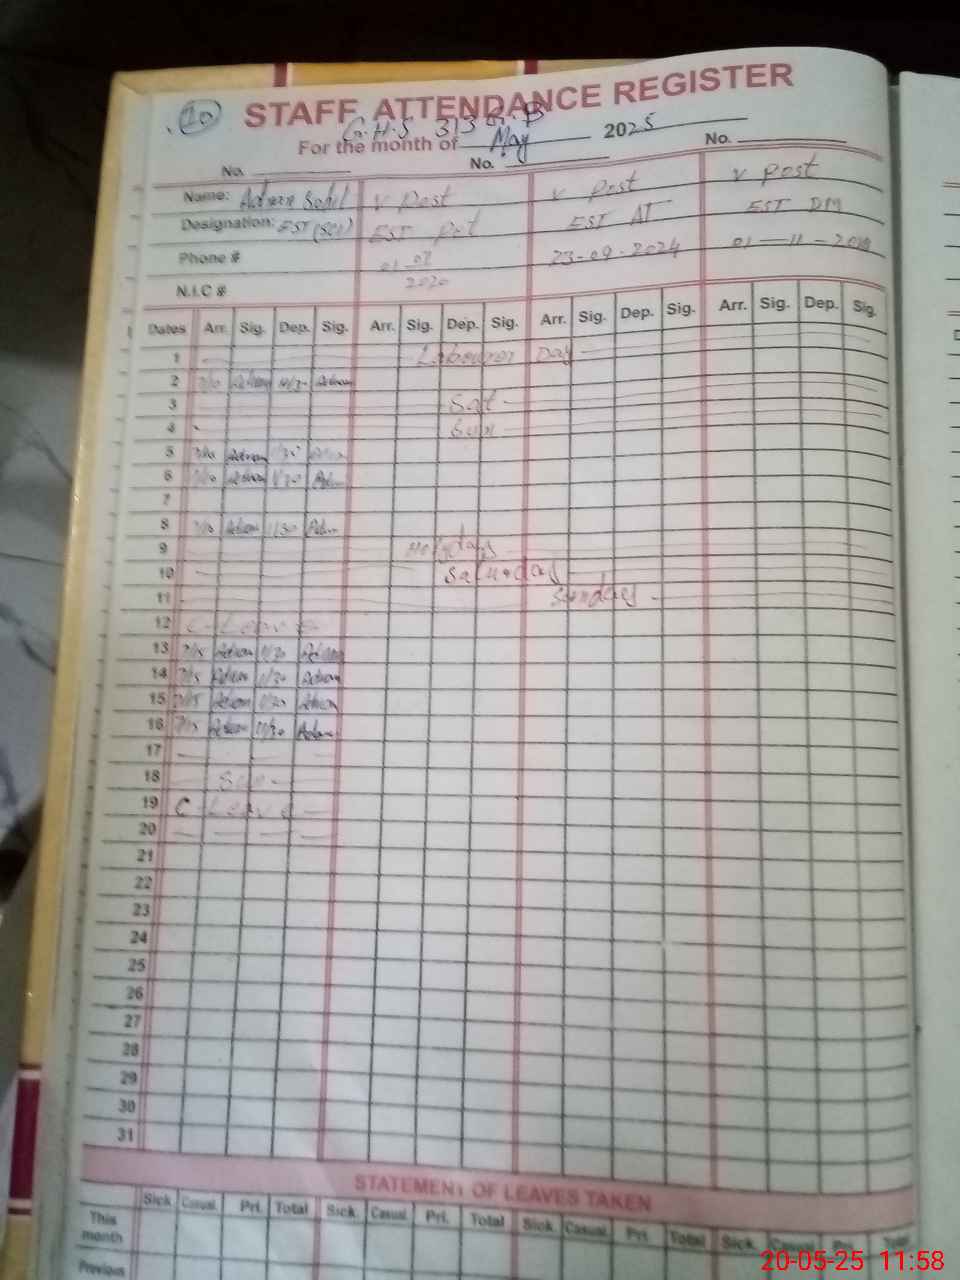 10
STAFF ATTENDANCE REGISTER
G.H.S 313 G.B
For the month of May 2025
No. No. No.
Name: Adnan Sohil V Post V Post V Post
Designation: EST (SCI) EST EST AT EST DM
Phone # 01-07 2020 23-09-2024 01-11-
N.I.C #
Dates Arr. Sig. Dep. Sig. Arr. Sig. Dep. Sig. Arr. Sig. Dep. Sig. Arr. Sig. Dep. Sig.
1 Labourer Day
2 7/10 Adnan Adnan
3 Sat
4 Sun
5 7/10 Adnan 1/30
6 7/10 Adnan 1/30
7
8 7/10 Adnan 1/30
9 Holydays
10 Saturday
11 Sunday
12 C-Leave
13 7/15 Adnan 1/30 Adnan
14 7/15 Adnan 1/30 Adnan
15 7/15 Adnan 1/30 Adnan
16 7/15 Adnan 11/30 Adnan
17
18 Sun
19 C-Leave
20
21
22
23
24
25
26
27
28
29
30
31
STATEMENT OF LEAVES TAKEN
Sick. Casual. Pri. Total Sick. Casual. Pri. Total Sick. Casual. Pri. Total Sick. Casual. Pri. Total
This month
Previous
20-05-25 11:58